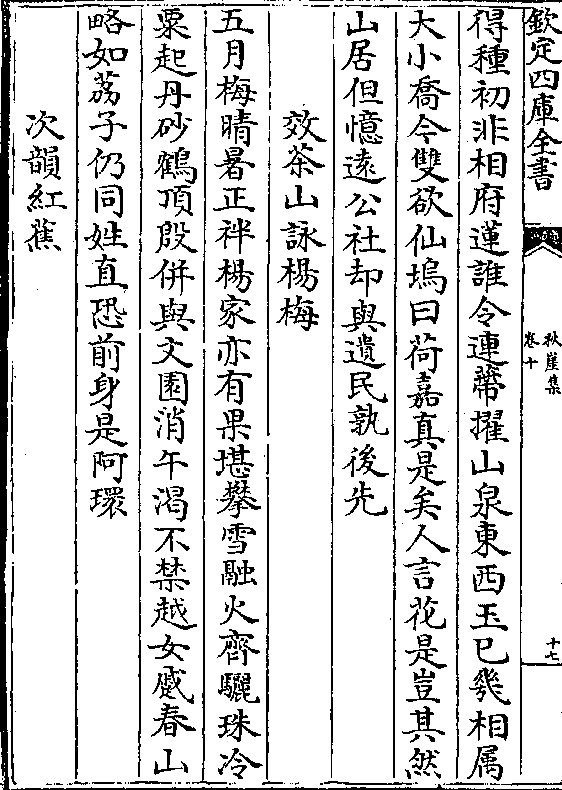 欽定四庫全書
秋崖集
卷十
十七
得種初非相府蓮誰令連蔕擢山泉東西玉已幾相属
大小喬今雙欲仙塢曰荷嘉真是矣人言花是豈其然
山居但憶遠公社却與遺民孰後先
效茶山詠楊梅
五月梅晴暑正袢楊家亦有果堪攀雪融火齊驪珠冷
粟起丹砂鶴頂殷併與文園消午渴不禁越女蹙春山
略如荔子仍同姓直恐前身是阿環
次韻紅蕉